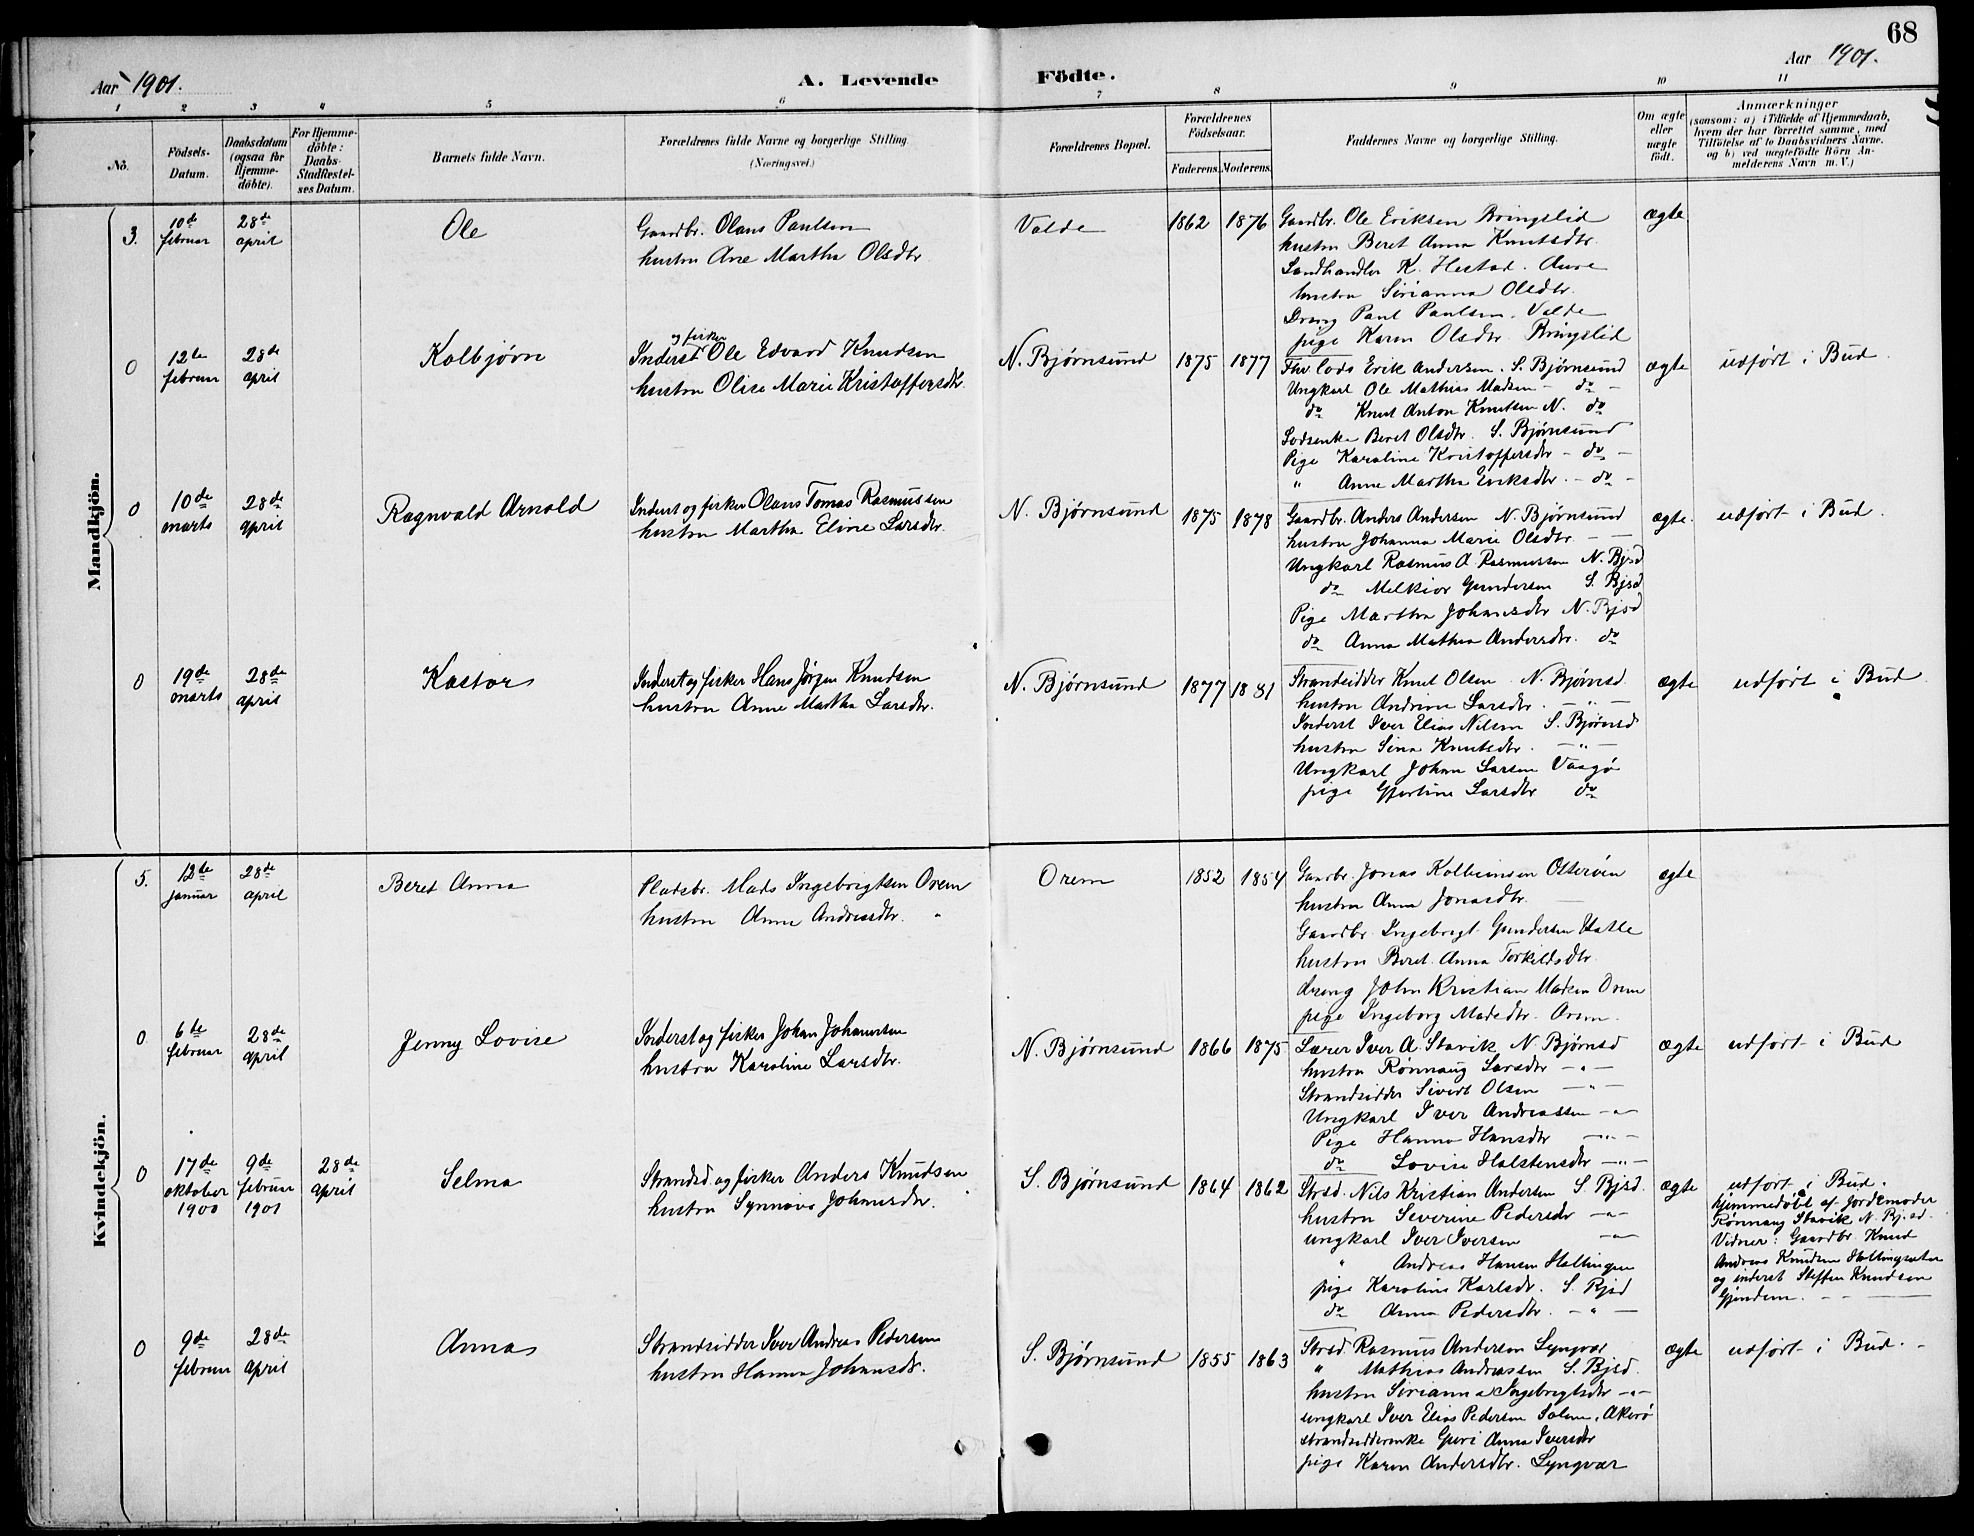 68
Aar 1901.
A. Levende Födte.
Aar 1901.
1 2 3 4 5 6 7 8 9 10 11
No.
Födsels-Datum.
Daabsdatum (ogsaa for Hjemme-döbte).
For Hjemme-döbte: Daabs-Stadfæstel-ses Datum.
Barnets fulde Navn.
Forældrenes fulde Navne og borgerlige Stilling (Næringsvei.)
Forældrenes Bopæl.
Forældrenes Födselsaar.
Faderens. Moderens.
Faddernes Navne og borgerlige Stilling.
Om ægte eller uægte født.
Anmærkninger
(saasom: a) i Tilfælde af Hjemmedaab,
hvem der har forrettet samme, med
Tilføielse af to Daabsvidners Navne.
og b) ved uægtefödte Börn An-
melderens Navn m. V.)
Mandkjön.
3. 10de februar 28de april Ole
Gaardbr. Olaus Paulsen
hustru Ane Martha Olsdtr
Valde 1862 1876
Gaardbr. Ole Eriksen Bringslid
hustru Beret Anna Knutsdtr.
Landhandler K. Hestad. Aure
hustru Sirianna Olsdtr.
Dreng Paul Paulsen. Valde
pige Karen Olsdtr Bringslid
ægte
0 12te februar 28de april Kolbjørn
Inderst og fisker Ole Edvard Knudsen
hustru Olise Marie Kristoffersdtr.
N. Bjørnsund 1875 1877
Fhv. Lods Erik Andersen. S. Bjørnsund
Ungkarl Ole Mathias Madsen - do -
do Knut Anton Knutsen N. do
Lodsenke Beret Olsdtr. S. Bjørnsund
Pige Karoline Kristoffersdtr - do -
" Anne Martha Eriksdtr. - do -
ægte udført i Bud.
0 10de marts 28de april Ragnvald Arnold
Inderst og fisker Olaus Tomas Rasmussen
hustru Martha Eline Larsdtr.
N. Bjørnsund 1875 1878
Gaardbr. Anders Andersen N. Bjørnsund
hustru Johanna Marie Olsdtr - -
Ungkarl Rasmus A Rasmussen N. Bjsd
do Melkior Gundersen S. Bjsd
Pige Martha Johansdtr N. Bjsd
do Anna Mathea Andersdtr. do
ægte. udført i Bud.
0 19de marts 28de april Kastor
Inderst og fisker Hans Jørgen Knudsen
hustru Anne Martha Larsdtr.
N. Bjørnsund 1877 1881
Strandsidder Knut Olsen N. Bjørnsd
hustru Andrine Larsdtr. - " -
Inderst Iver Elias Nilsen S. Bjørnsd
hustru Sina Knutsdtr. - " -
Ungkarl Johan Larsen Vaagø
pige Gjertine Larsdtr do
ægte udført i Bud
Kvindekjön.
5. 12te januar 28de april Beret Anna
Pladsbr. Mads Ingebrigtsen Orem
hustru Anne Andreasdtr. "
Orem 1852 1854
Gaardbr. Jonas Kolbeinsen
hustru Anna Jonasdtr.
Gaardbr. Ingebrigt Gundersen Hatle
hustru Beret Anna Torkildsdtr.
dreng John Kristian Madsen Orem
pige Ingeborg Madsdtr. Orem.
ægte
0 6te februar 28de april Jenny Lovise
Inderst og fisker Johan Johansen
hustru Karoline Larsdtr.
N. Bjørnsund 1866 1875
Lærer Iver A. Stavik N Bjørnsd
hustru Rønnaug Larsdtr - " -
Strandsidder Sivert Olsen - " -
Ungkarl Iver Andreassen - " -
Pige Hanna Hansdtr - " -
do Lovise Halstensdtr - " -
ægte udført i Bud
0 17de oktober 1900 9de februar 1901 28de april Selma
Strandsd. og fisker Anders Knudsen
hustru Synnøve Johansdtr.
S. Bjørnsund 1864 1862
Strsd. Nils Kristian Andersen S. Bjsd.
hustru Severine Pedersdtr - " -
ungkarl Iver Iversen - " -
" Andreas Hansen Hallingen
pige Karoline Karlsdtr. S. Bjsd
do Anna Pedersdtr. - " -
ægte udført i Bud.
hjemmedøbt af Jordemoder
Rønnaug Stavik N. Bj.sd.
Vidner: Gaardbr. Knud
Andreas Knudsen
og inderst Steffen Knudsen
Gjendem.
0 9de februar 28de april Anna
Strandsidder Iver Andreas Pedersen
hustru Hanna Johansdtr.
S. Bjørnsund 1855 1863
Strsd. Rasmus Andersen Lyngvær
" Mathias Andreassen S. Bjsd.
hustru Sirianna Ingebrigtsdtr - " -
ungkarl Iver Elias Pedersen Solem, Akerø
strandsidderenke Guri Anna Iversdtr
pige Karen Andersdtr. Lyngvær
ægte udført i Bud.